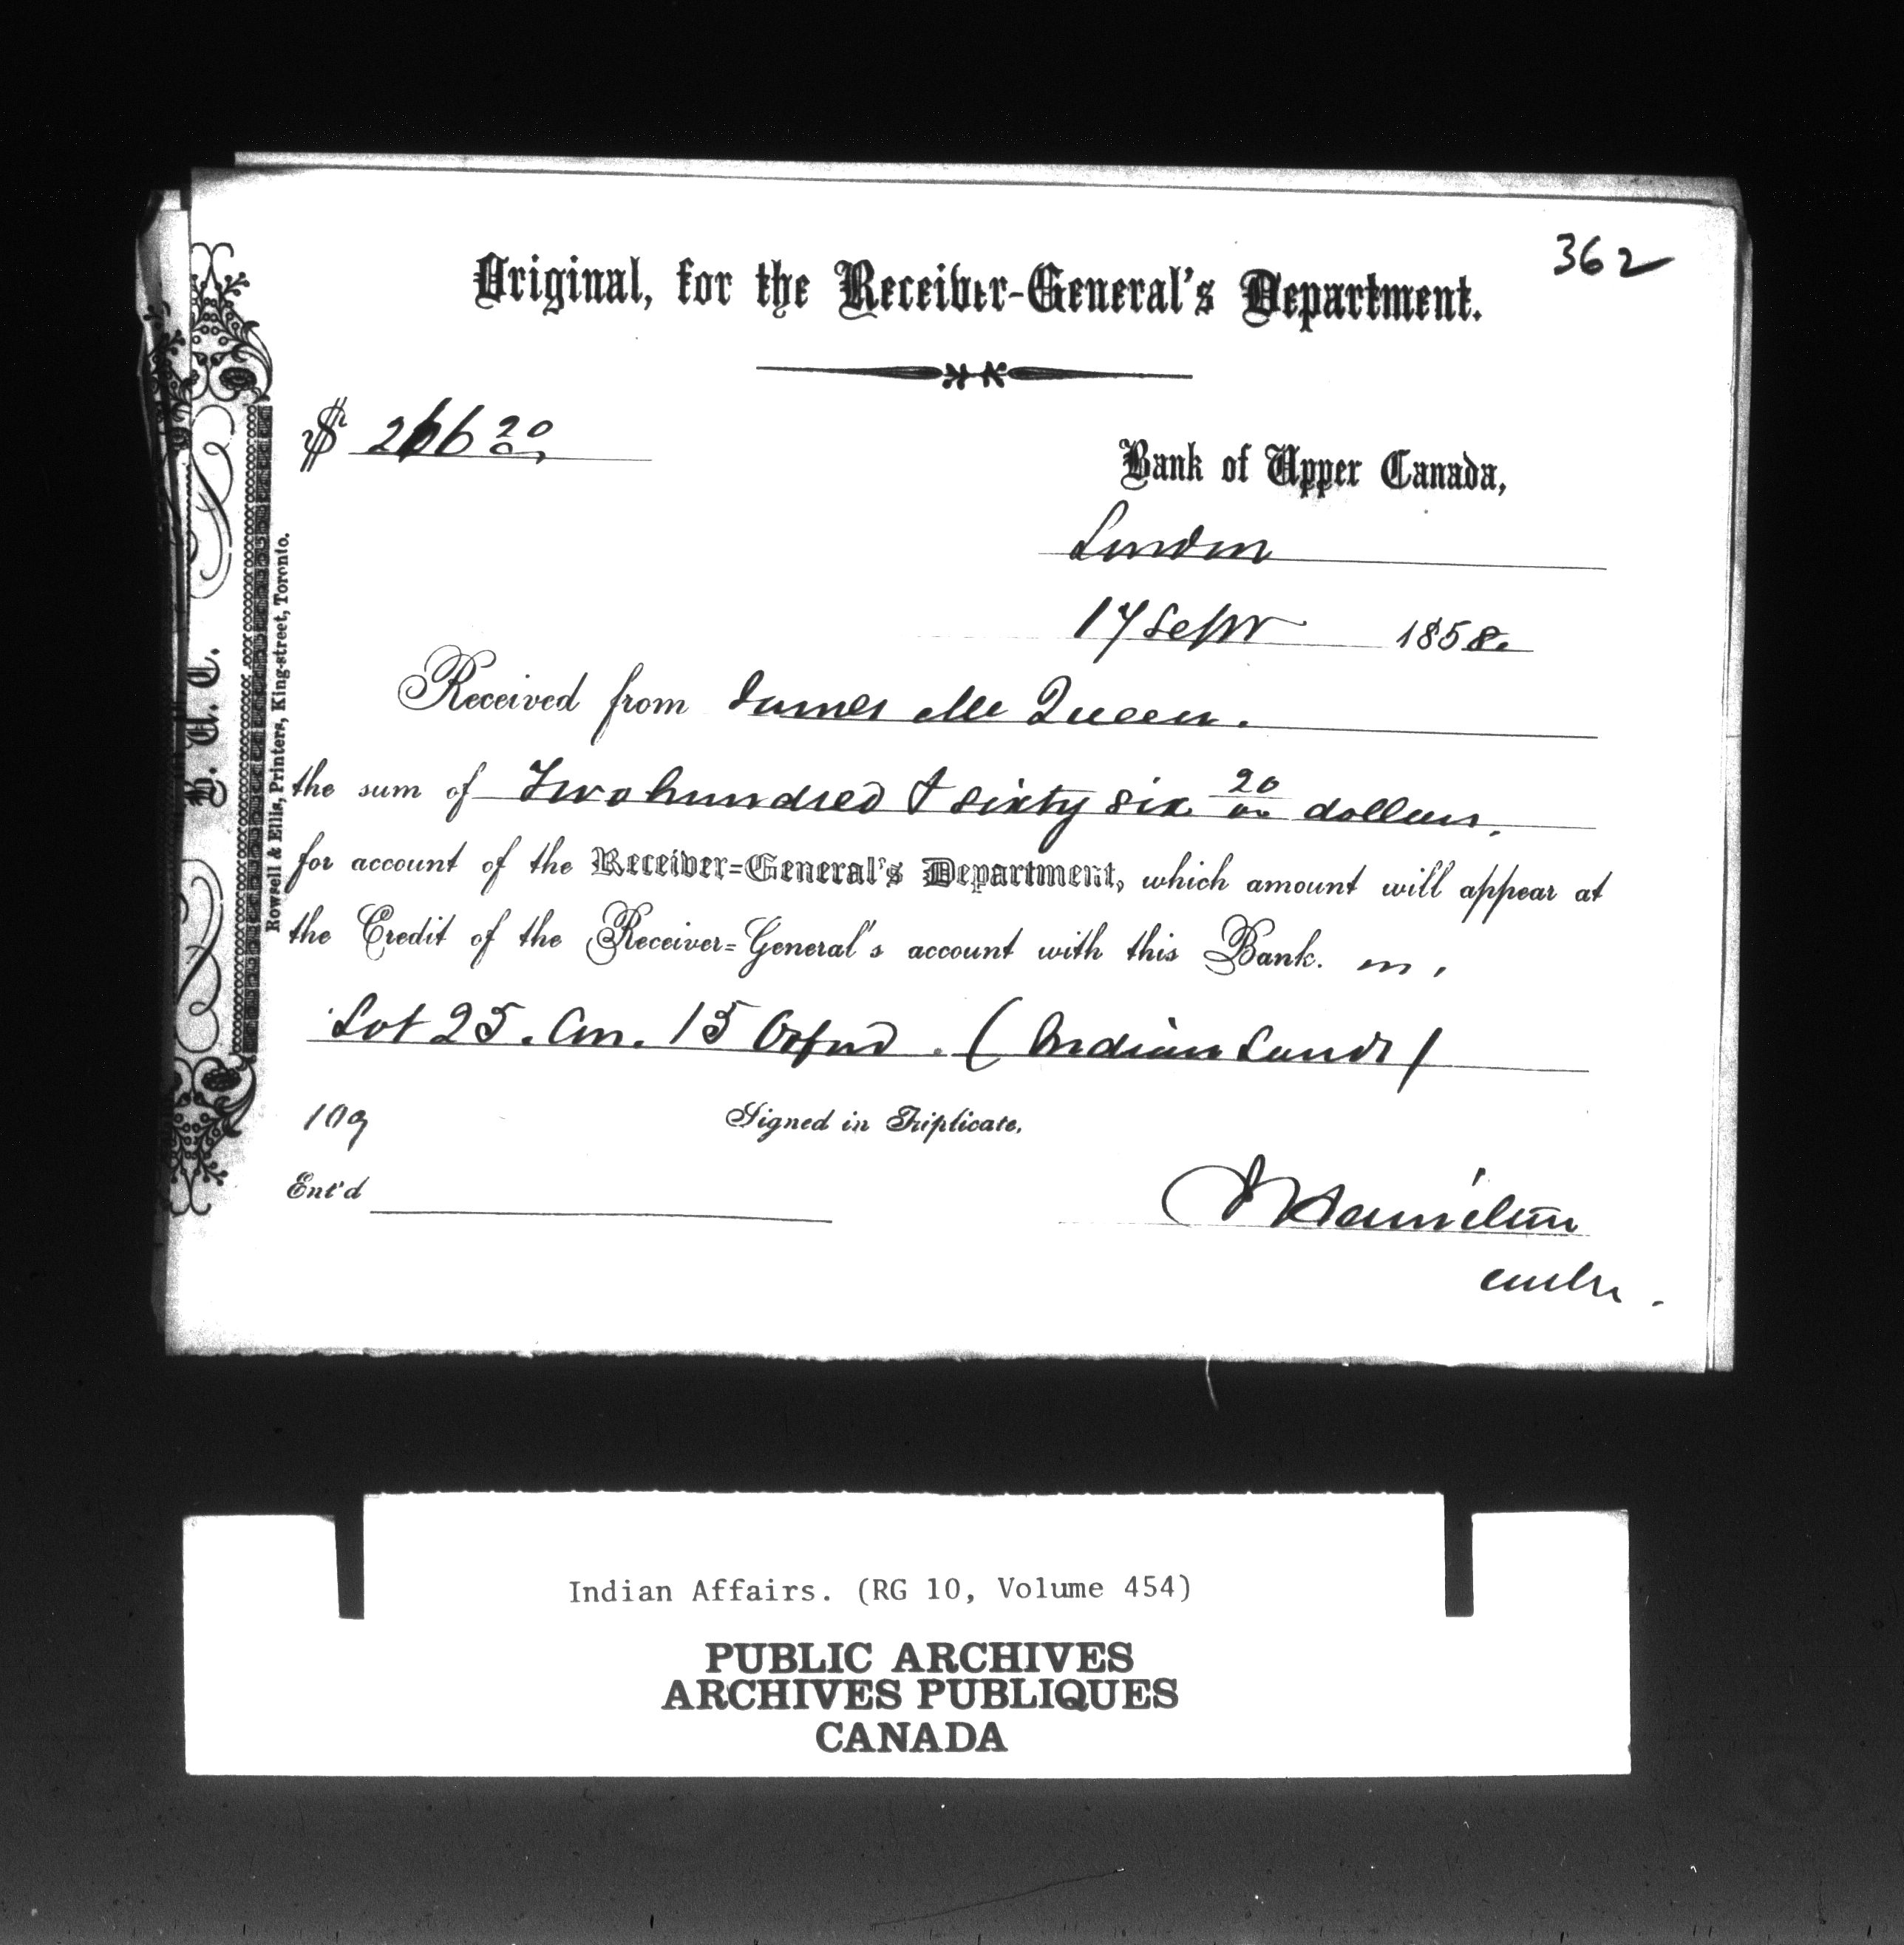 362
Original, for the Receiver-General's Department.
$ 266 20/00
Bank of Upper Canada,
London
17 Sepr 1858.
Received from James Mc Queen.
the sum of Two hundred & sixty six 20/00 dollars,
for account of the Receiver=General's Department, which amount will appear at
the Credit of the Receiver=General's account with this Bank. on,
Lot 25. Con. 15 Orford. (Indian Lands)
109
Signed in Triplicate.
Ent'd
Hamilton
Rowsell & Ellis, Printers, King-street, Toronto.
Indian Affairs. (RG 10, Volume 454)
PUBLIC ARCHIVES
ARCHIVES PUBLIQUES
CANADA